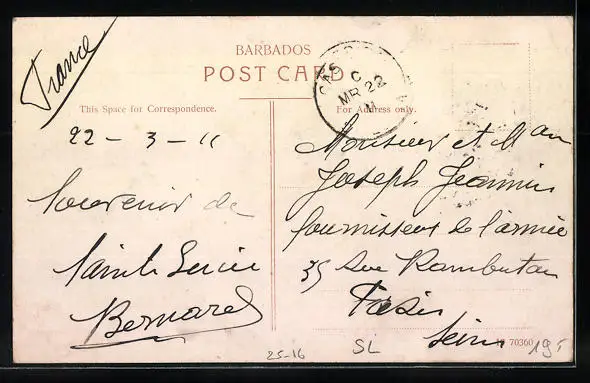 France
BARBADOS
POST CARD
This Space for Correspondence.
For Address only.
C
MR 22
11
22 - 3 - 11
Souvenir de
Sainte Lucie
Bernard
Monsieur et Mau
Joseph Jeannin
fournisseur de l'armée
35 Rue Rambuteau
Paris
Seine
70360
25-16
SL
195